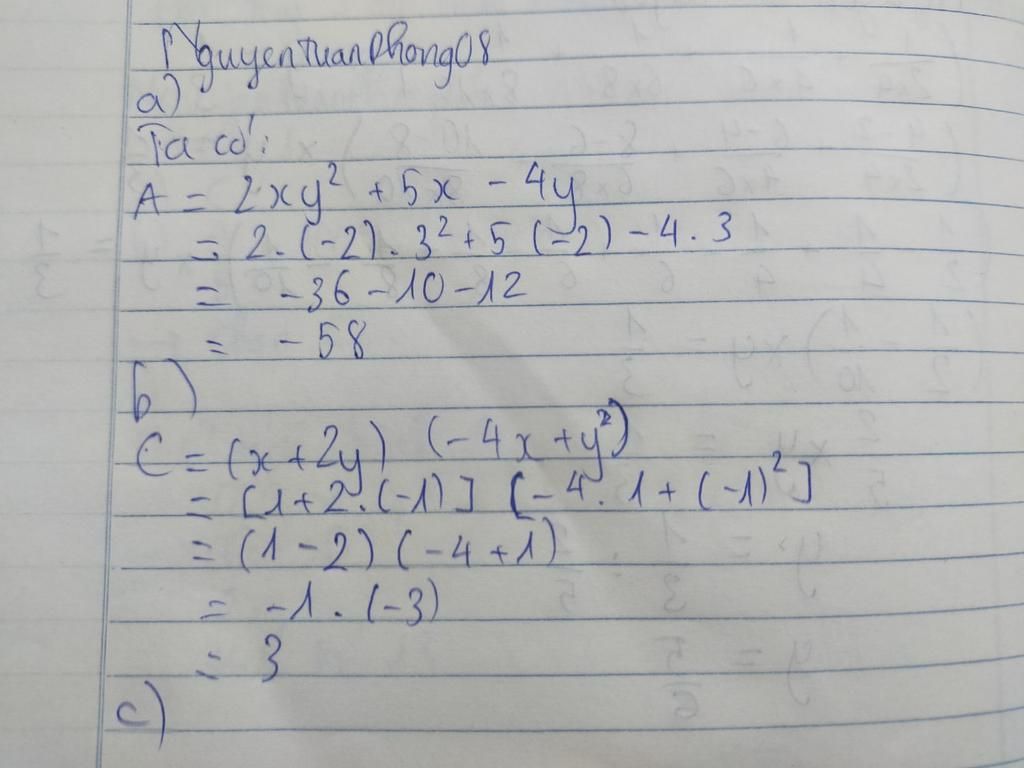 NguyenTuanPhong08
a)
Ta có:
A = 2xy² + 5x - 4y
= 2.(-2).3² + 5(-2) - 4.3
= -36 - 10 - 12
= -58
b)
C = (x + 2y) (-4x + y²)
= [1 + 2.(-1)] [-4.1 + (-1)²]
= (1 - 2) (-4 + 1)
= -1.(-3)
= 3
c)